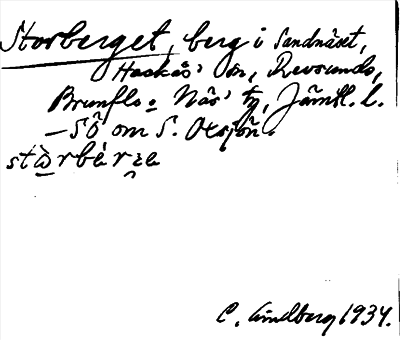 Storberget, berg i Sandnäset,
Haskås' by, Revsunds,
Brunflo o. Näs' tg, Jämtl. l.
– SÖ om S. Oxsjön.
stɷ̀rbær̀ɹe
C. Lindberg 1934.